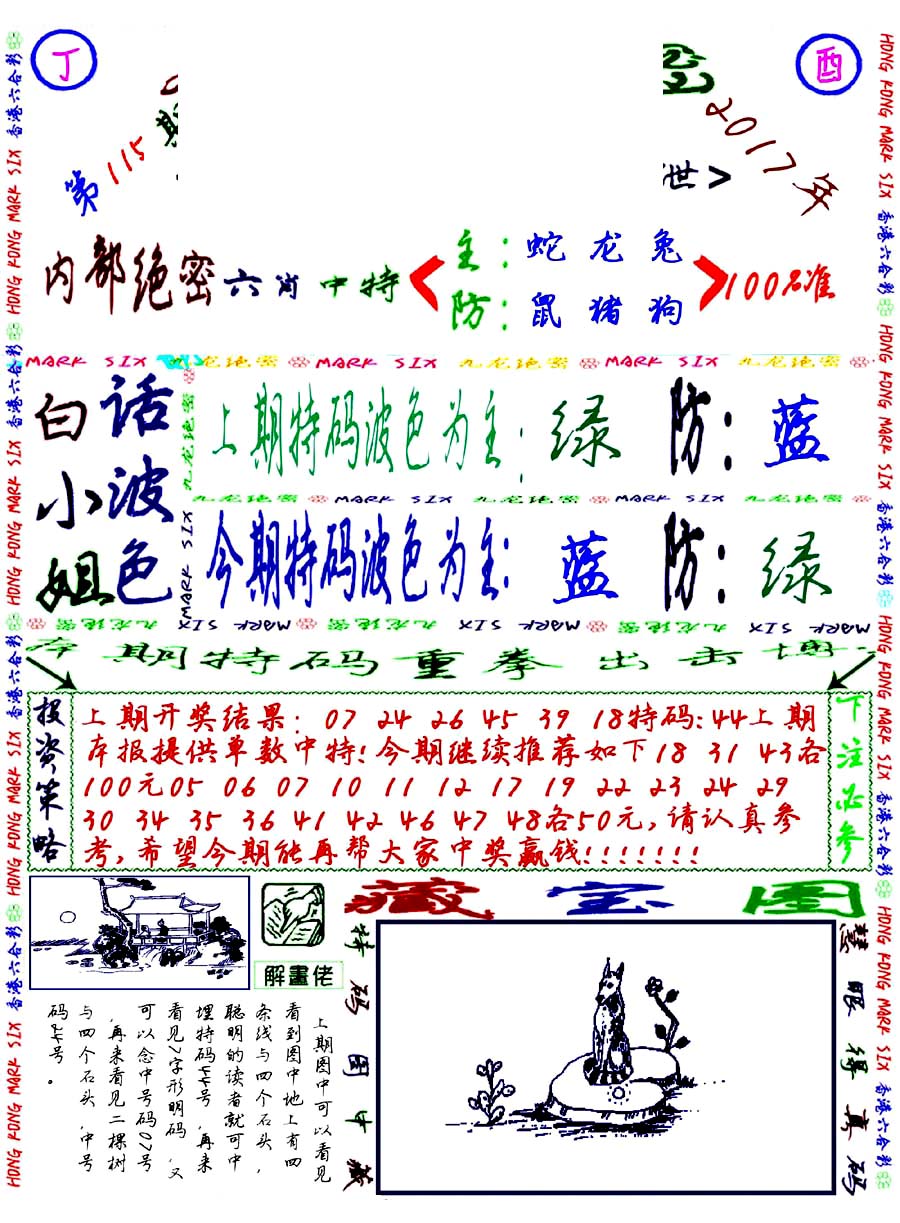 丁
酉
第115期
2017年
世>
内部绝密六肖中特
主：蛇 龙 兔
防：鼠 猪 狗
100%准
MARK SIX 九龙绝密 MARK SIX 九龙绝密 MARK SIX 九龙绝密
白话
小波
姐色
上期特码波色为主：绿 防：蓝
九龙绝密 MARK SIX 九龙绝密 MARK SIX 九龙绝密
今期特码波色为主：蓝 防：绿
九龙绝密 MARK SIX 九龙绝密 MARK SIX 九龙绝密 MARK SIX
本期特码重拳出击博
投资策略
上期开奖结果：07 24 26 45 39 18特码:44上期
本报提供单数中特!今期继续推荐如下18 31 43各
100元05 06 07 10 11 12 17 19 22 23 24 29
30 34 35 36 41 42 46 47 48各50元,请认真参
考,希望今期能再帮大家中奖赢钱!!!!!!!
下注必参
解畫佬
藏宝图
上期图中可以看见
看到图中地上有四
条线与四个石头，
聪明的读者就可中
埋特码44号，再来
看见7字形明码，又
可以念中号码07号
，再来看见二棵树
与四个石头，中号
码24号。
特码图中藏
慧眼得真码
HONG KONG MARK SIX 香港六合彩 HONG KONG MARK SIX 香港六合彩 HONG KONG MARK SIX 香港六合彩 HONG KONG MARK SIX 香港六合彩
HONG KONG MARK SIX 香港六合彩 HONG KONG MARK SIX 香港六合彩 HONG KONG MARK SIX 香港六合彩 HONG KONG MARK SIX 香港六合彩